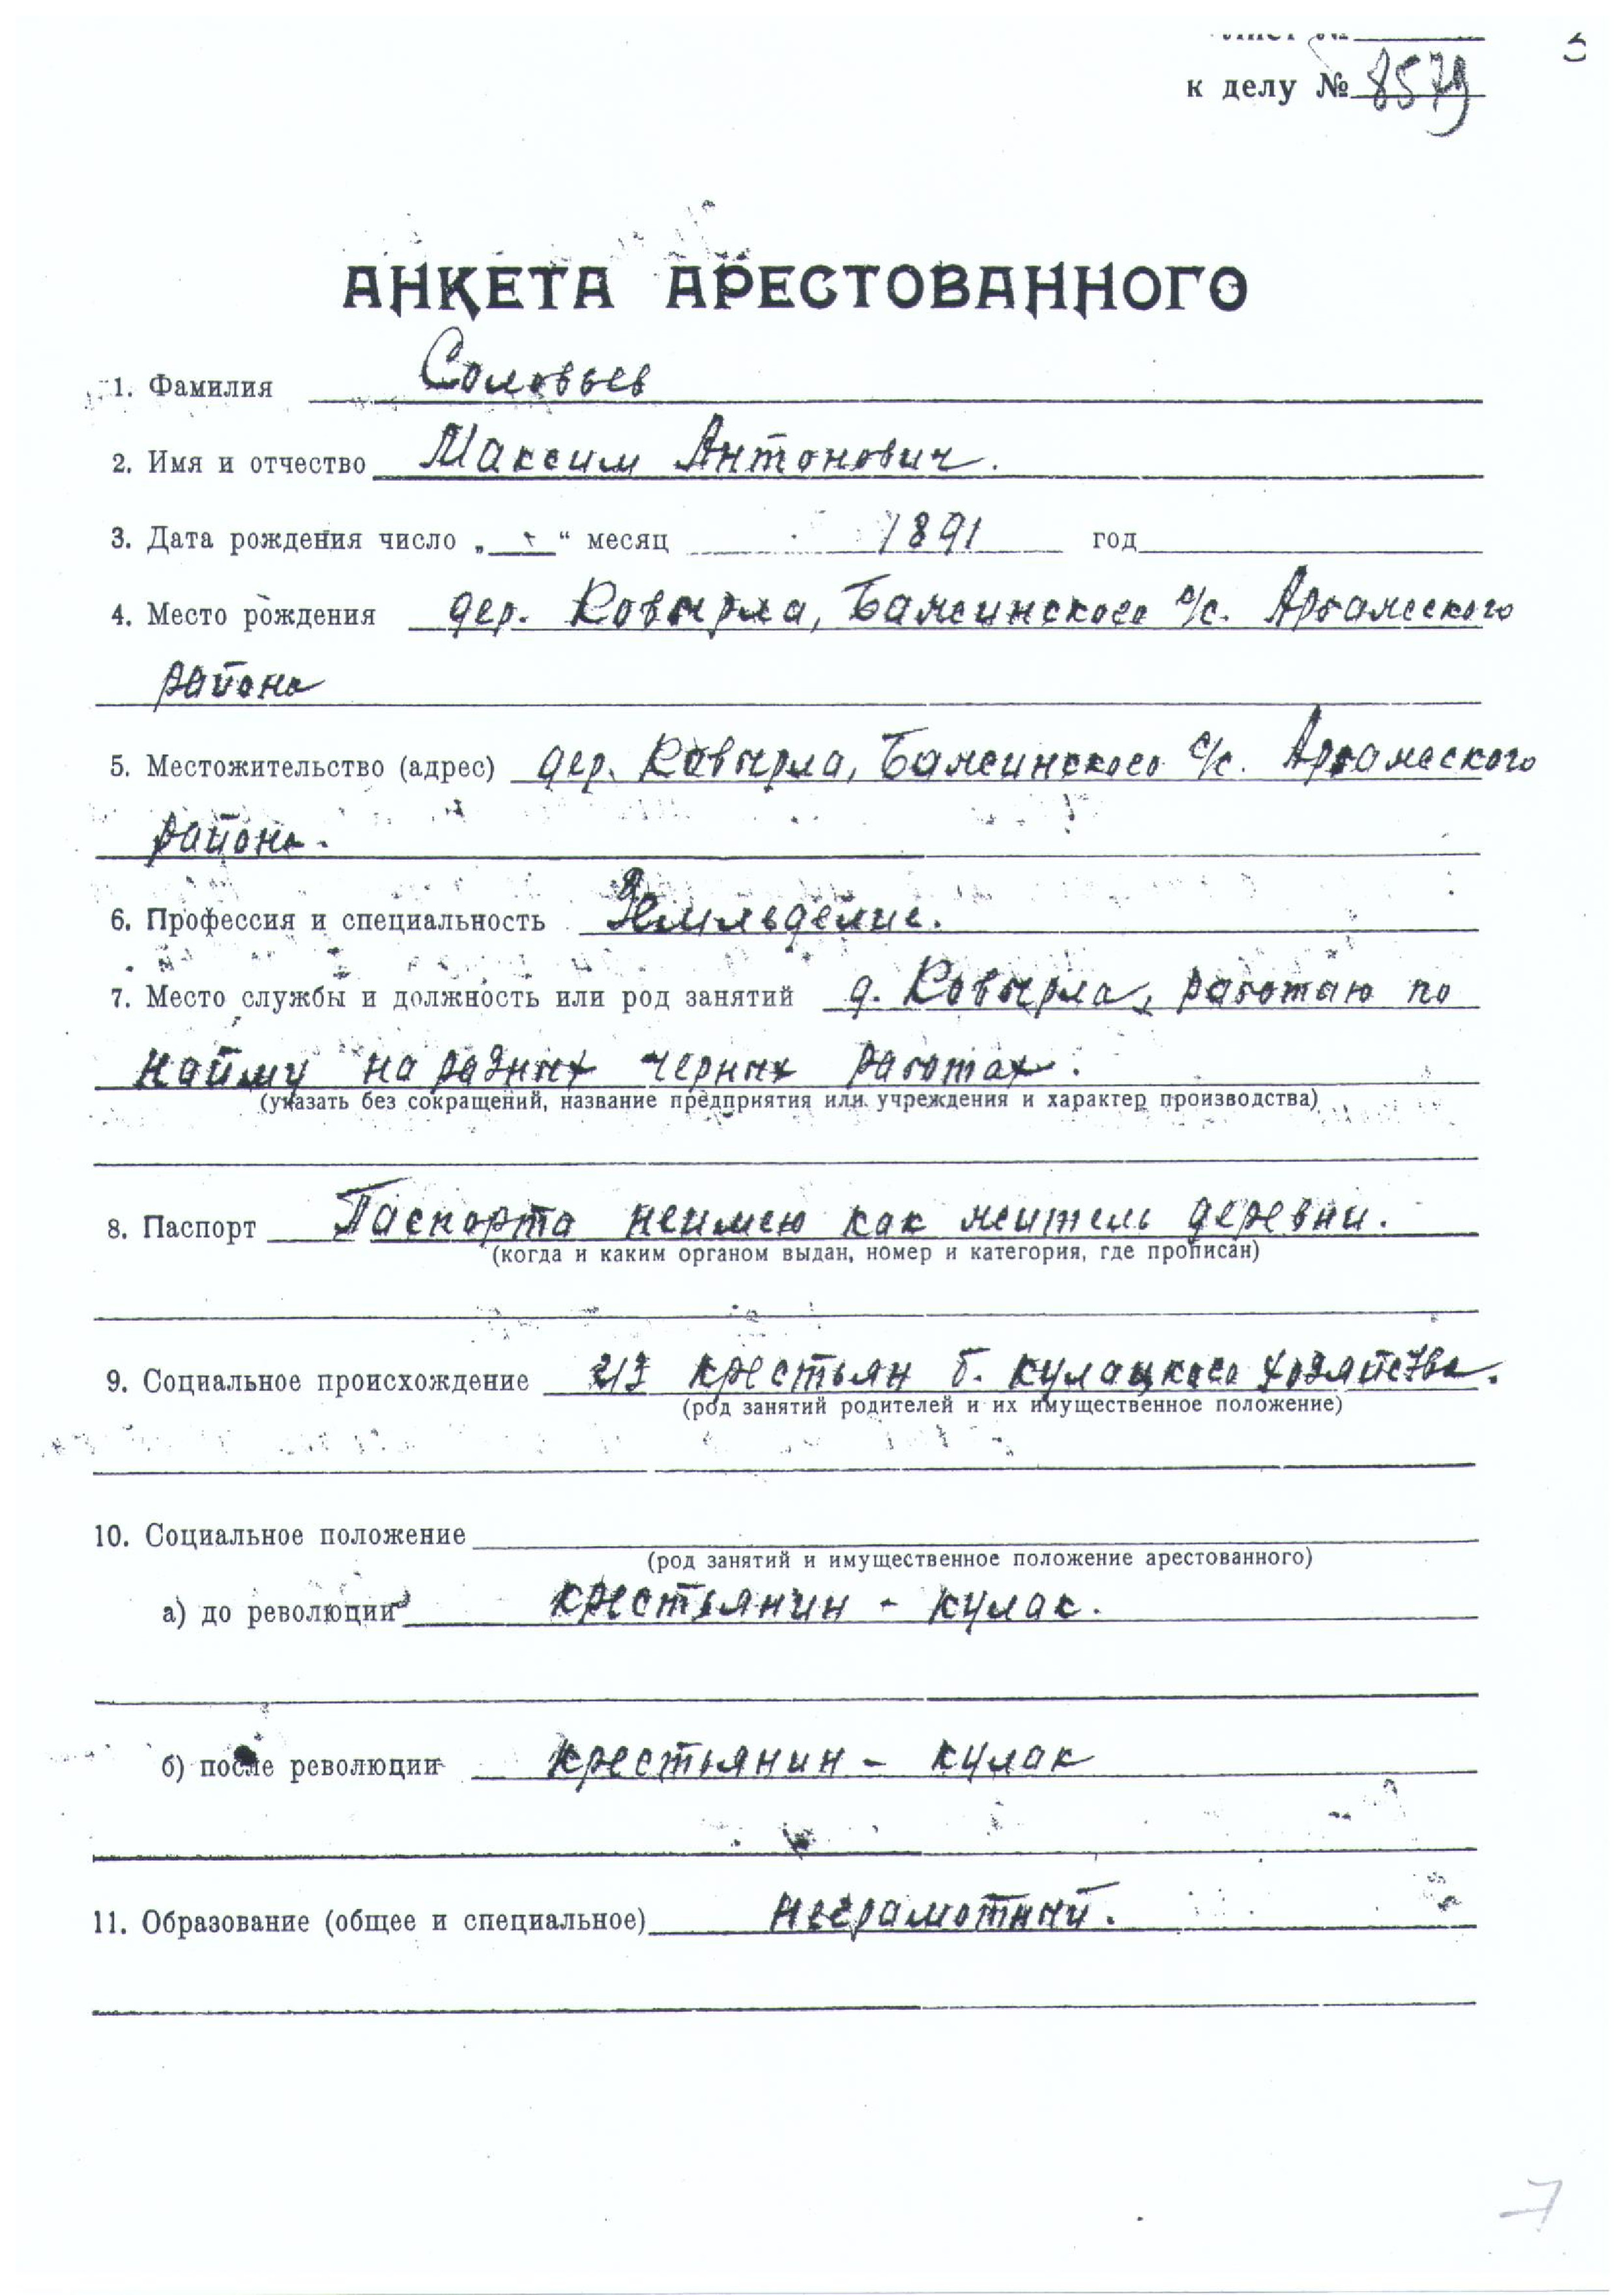 к делу № 8579
АНКЕТА АРЕСТОВАННОГО
1. Фамилия Соловьев
2. Имя и отчество Максим Антонович.
3. Дата рождения число „ “ месяц 1891 год
4. Место рождения дер. Ковырла, Бамсинского с/с. Арбажского
района
5. Местожительство (адрес) дер. Ковырла, Бамсинского с/с. Арбажского
района.
6. Профессия и специальность Земледелие.
7. Место службы и должность или род занятий д. Ковырла, работаю по
найму на разных черных работах.
(указать без сокращений, название предприятия или учреждения и характер производства)
8. Паспорт Паспорта неимею как житель деревни.
(когда и каким органом выдан, номер и категория, где прописан)
9. Социальное происхождение из крестьян б. кулацкого хозяйства.
(род занятий родителей и их имущественное положение)
10. Социальное положение
(род занятий и имущественное положение арестованного)
а) до революции крестьянин - кулак.
б) после революции крестьянин - кулак
11. Образование (общее и специальное) неграмотный.
7